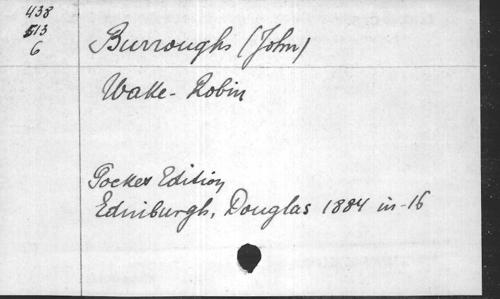 438
513
6
Burroughs (John)
Wake-Robin
Pocket Edition
Edinburgh, Douglas 1884 in-16